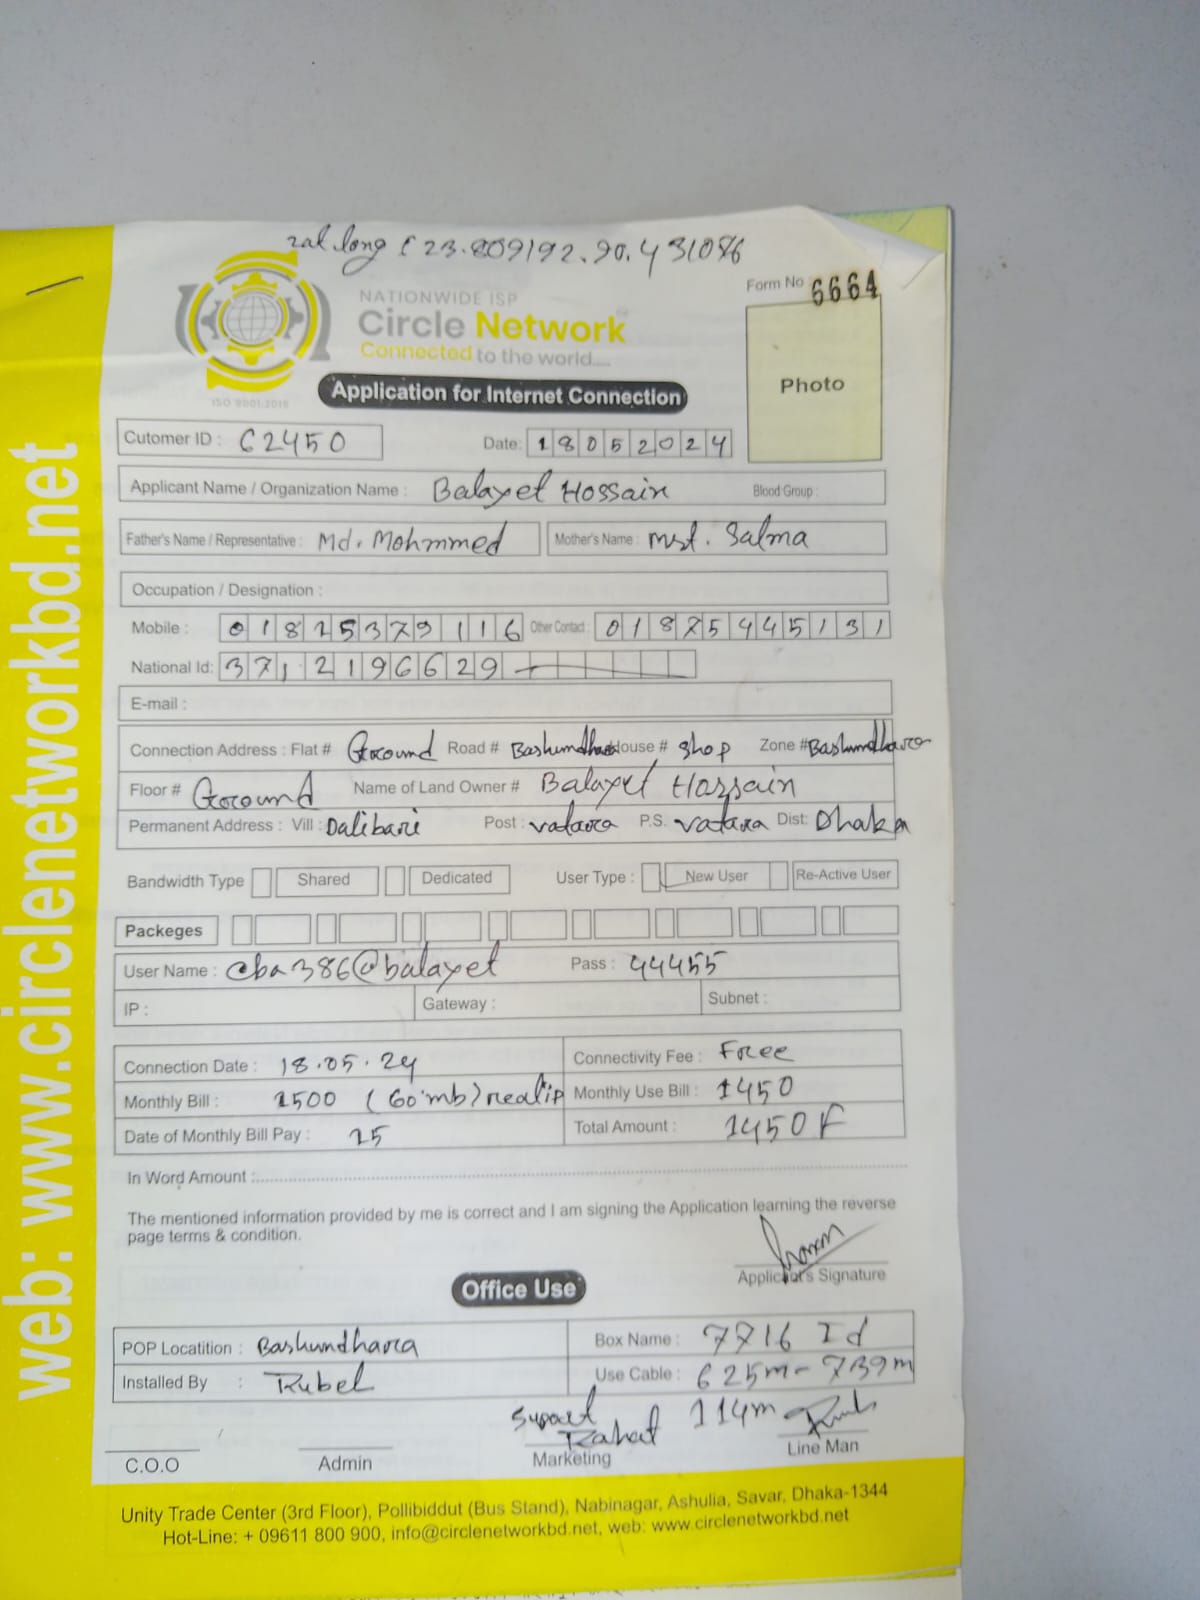 zat long (23.809192.90.431086
Form No 6664
NATIONWIDE ISP
Circle Network
Connected to the world....
ISO 9001:2015
Photo
Application for Internet Connection
Cutomer ID : 62450 Date: 18052024
Applicant Name / Organization Name : Balayet Hossain Blood Group :
Father's Name / Representative : Md. Mohmmed Mother's Name : Mst. Salma
Occupation / Designation :
Mobile : 01825379116 Other Contact : 01875445131
National Id: 3712196629
E-mail :
Connection Address : Flat # Ground Road # Bashundhara House # Shop Zone # Bashundhara
Floor # Ground Name of Land Owner # Balayet Hossain
Permanent Address : Vill : Dalibari Post : vatara P.S. vatara Dist: Dhaka
Bandwidth Type Shared Dedicated User Type : New User Re-Active User
Packeges
User Name : cba386@balayet Pass : 44455
IP : Gateway : Subnet :
Connection Date : 18.05.24 Connectivity Fee : Free
Monthly Bill : 1500 (60 mb) realip Monthly Use Bill : 1450
Date of Monthly Bill Pay : 15 Total Amount : 1450
In Word Amount :
The mentioned information provided by me is correct and I am signing the Application learning the reverse
page terms & condition.
Applicant's Signature
Office Use
POP Locatition : Bashundhara Box Name : 7716 Id
Installed By : Rubel Use Cable : 625m - 739m
114m
Rahat
C.O.O Admin Marketing Line Man
Unity Trade Center (3rd Floor), Pollibiddut (Bus Stand), Nabinagar, Ashulia, Savar, Dhaka-1344
Hot-Line: + 09611 800 900, info@circlenetworkbd.net, web: www.circlenetworkbd.net
web: www.circlenetworkbd.net